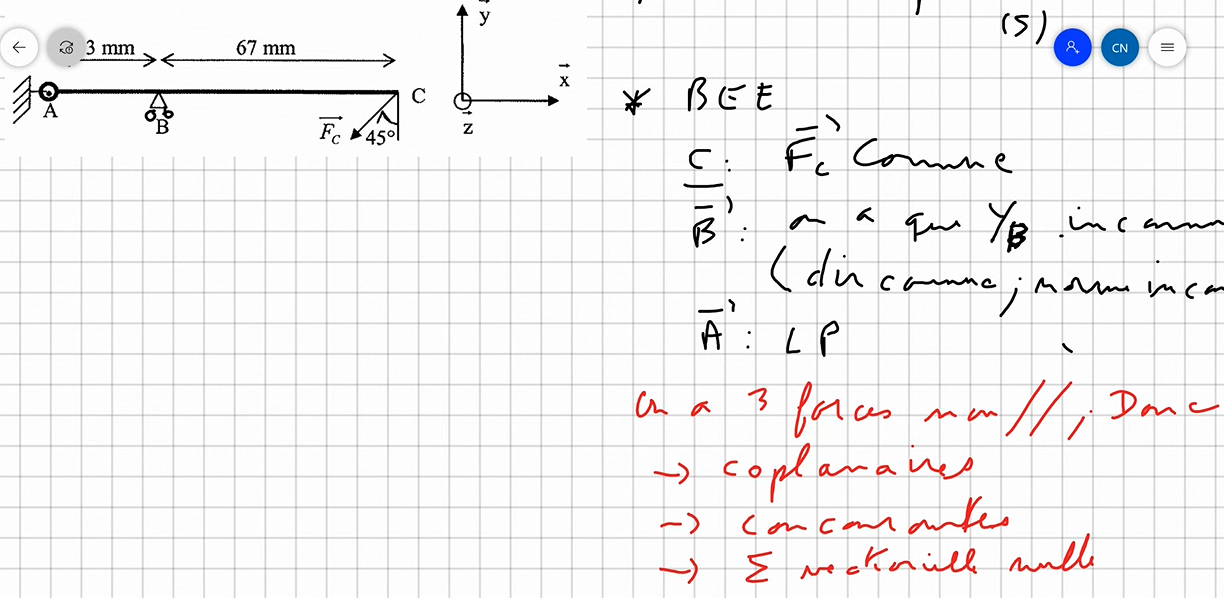 3 mm
67 mm
A
B
C
Fc
45°
y
x
z
(S)
CN
* BEE
C : Fc Connue
B : on a que YB inconn
(dir connue ; norme incon
A : LP
On a 3 forces non // ; Donc
→ coplanaires
→ concourantes
→ Σ vectorielle nulle